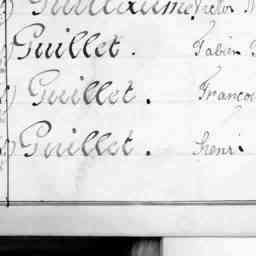 Guillaume Victor
Guillet. Fabien
Guillet. Franço
Guillet. Henri